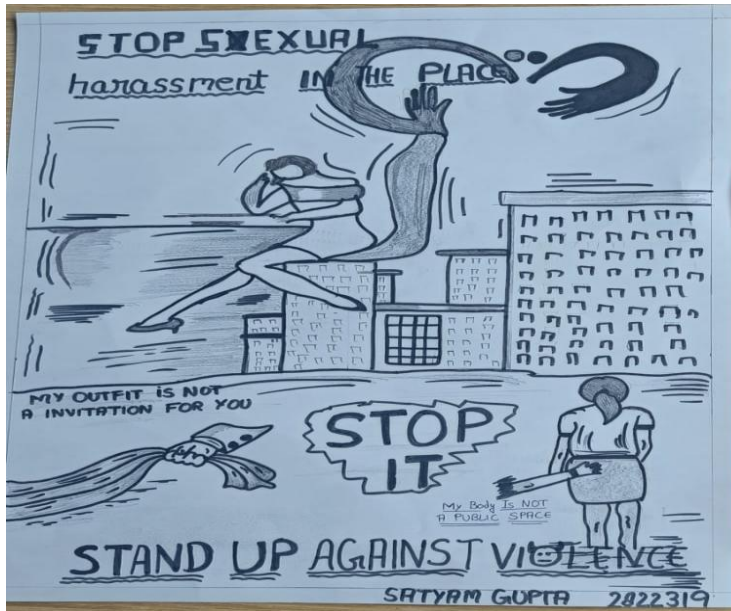 STOP SEXUAL
harassment IN THE PLACE
MY OUTFIT IS NOT
A INVITATION FOR YOU
STOP
IT
My Body Is NOT
A PUBLIC SPACE
STAND UP AGAINST VIOLENCE
SATYAM GUPTA 2822319